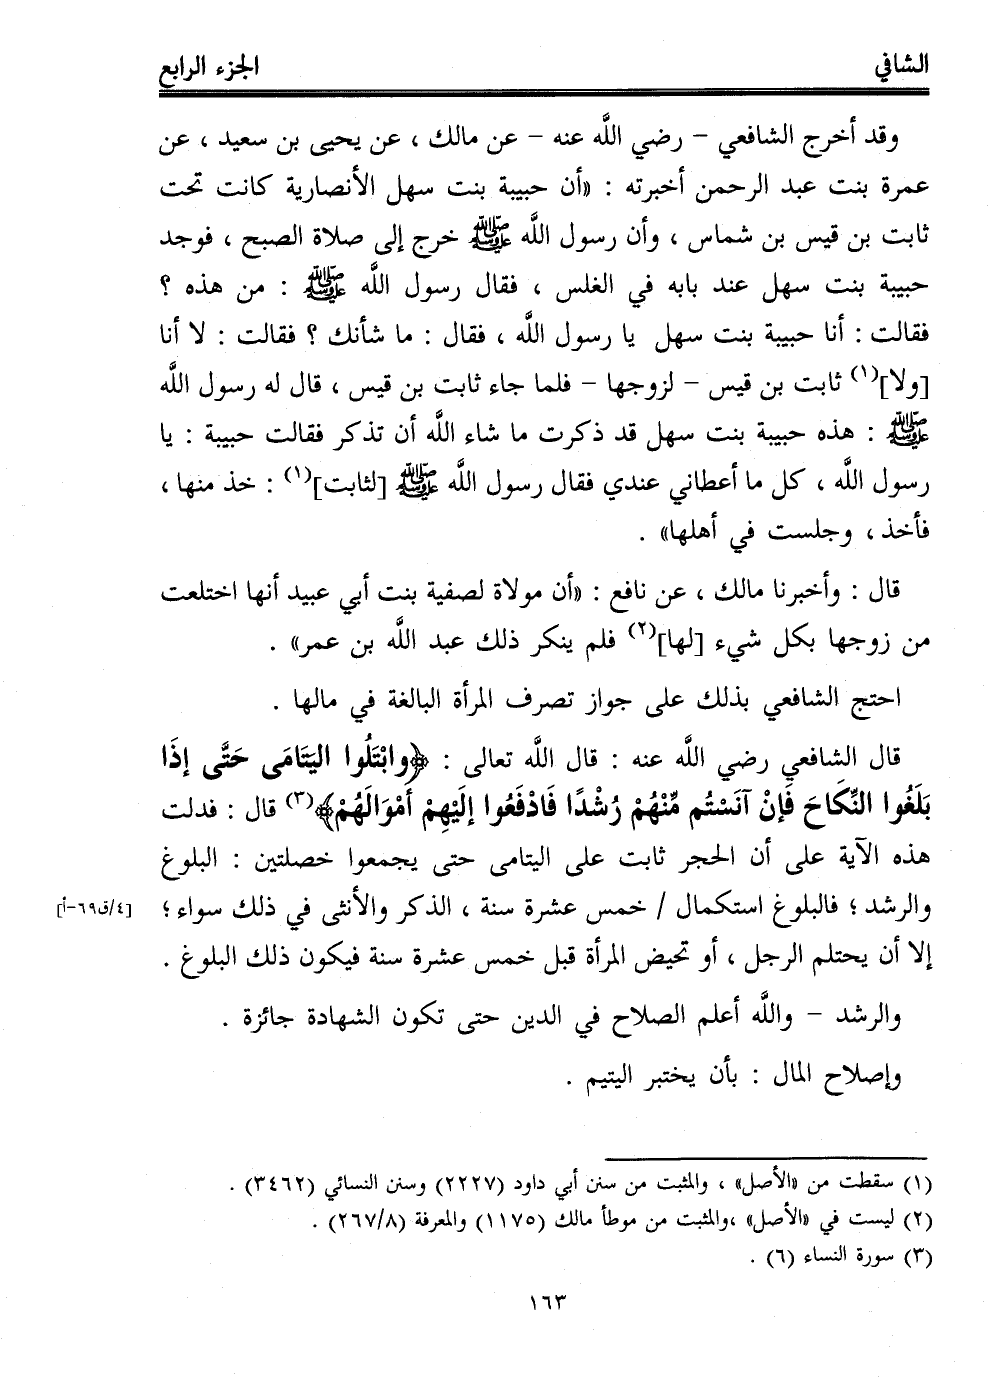 الشافي
الجزء الرابع
وقد أخرج الشافعي - رضي اللَّه عنه - عن مالك ، عن يحيى بن سعيد ، عن
عمرة بنت عبد الرحمن أخبرته : «أن حبيبة بنت سهل الأنصارية كانت تحت
ثابت بن قيس بن شماس ، وأن رسول اللَّه ﷺ خرج إلى صلاة الصبح ، فوجد
حبيبة بنت سهل عند بابه في الغلس ، فقال رسول اللَّه ﷺ : من هذه ؟
فقالت : أنا حبيبة بنت سهل يا رسول اللَّه ، فقال : ما شأنك ؟ فقالت : لا أنا
[ولا](١) ثابت بن قيس - لزوجها - فلما جاء ثابت بن قيس ، قال له رسول اللَّه
ﷺ : هذه حبيبة بنت سهل قد ذكرت ما شاء اللَّه أن تذكر فقالت حبيبة : يا
رسول اللَّه ، كل ما أعطاني عندي فقال رسول اللَّه ﷺ [لثابت](١) : خذ منها ،
فأخذ ، وجلست في أهلها» .
قال : وأخبرنا مالك ، عن نافع : «أن مولاة لصفية بنت أبي عبيد أنها اختلعت
من زوجها بكل شيء [لها](٢) فلم ينكر ذلك عبد اللَّه بن عمر» .
احتج الشافعي بذلك على جواز تصرف المرأة البالغة في مالها .
قال الشافعي رضي اللَّه عنه : قال اللَّه تعالى : ﴿وابْتَلُوا اليَتَامَى حَتَّى إذَا
بَلَغُوا النِّكَاحَ فَإنْ آنَسْتُم مِّنْهُمْ رُشْدًا فَادْفَعُوا إلَيْهِمْ أمْوَالَهُمْ﴾(٣) قال : فدلت
هذه الآية على أن الحجر ثابت على اليتامى حتى يجمعوا خصلتين : البلوغ
والرشد ؛ فالبلوغ استكمال / خمس عشرة سنة ، الذكر والأنثى في ذلك سواء ؛ [٤/ق٦٩-أ]
إلا أن يحتلم الرجل ، أو تحيض المرأة قبل خمس عشرة سنة فيكون ذلك البلوغ .
والرشد - واللَّه أعلم الصلاح في الدين حتى تكون الشهادة جائزة .
وإصلاح المال : بأن يختبر اليتيم .
(١) سقطت من «الأصل» ، والمثبت من سنن أبي داود (٢٢٢٧) وسنن النسائي (٣٤٦٢) .
(٢) ليست في «الأصل» ،والمثبت من موطأ مالك (١١٧٥) والمعرفة (٢٦٧/٨) .
(٣) سورة النساء (٦) .
١٦٣